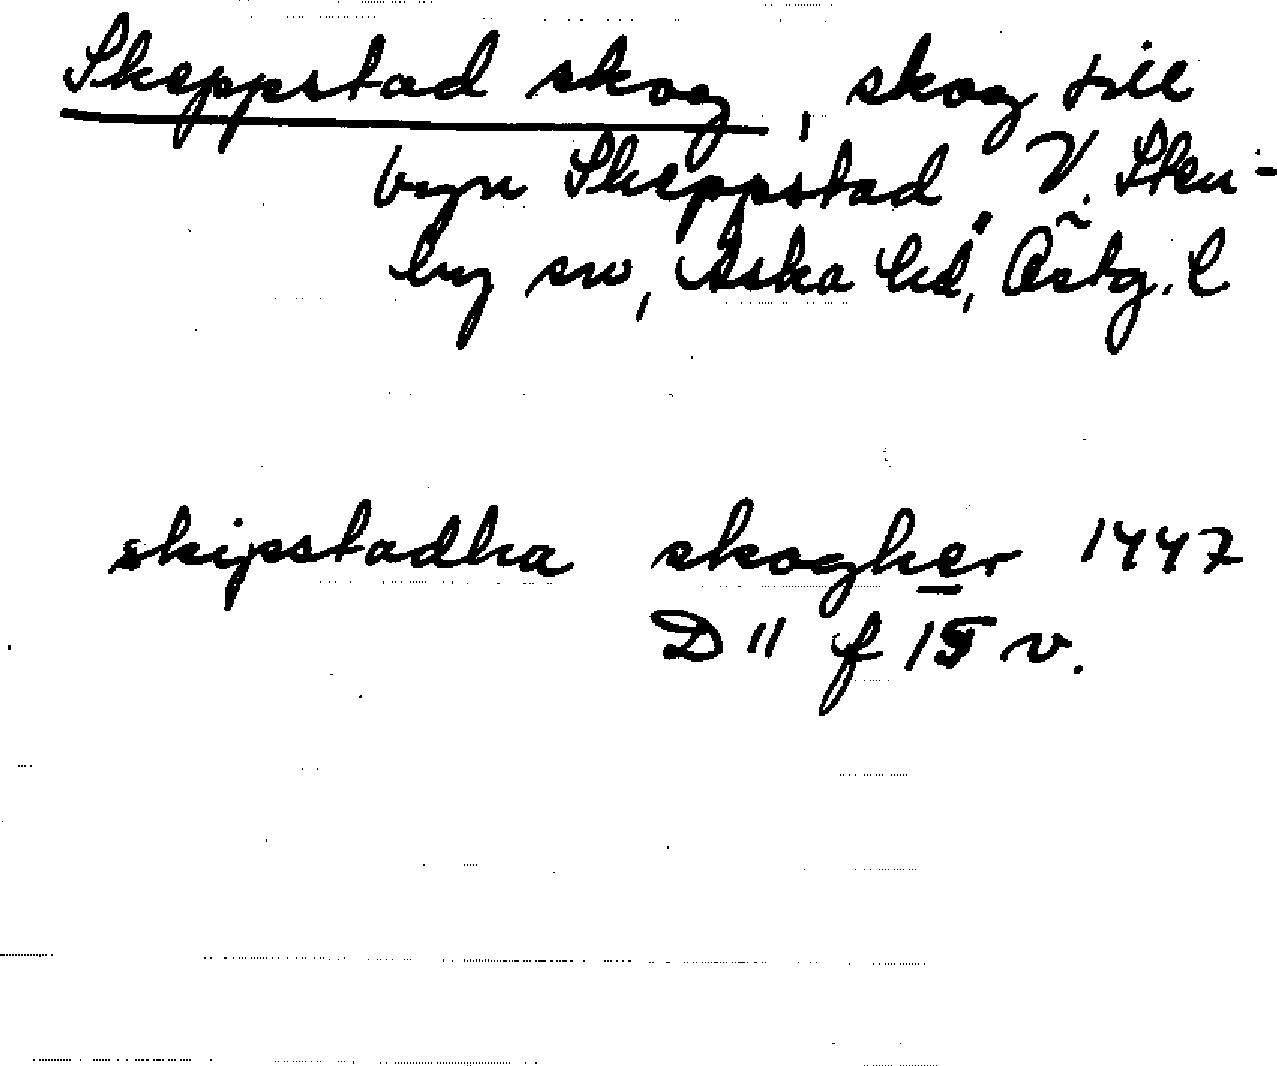 Skeppstad skog, skog till
byn Skeppstad, V. Sten-
by sn, Aska hd, Östg. l
skipstadha skogher 1447
D 11 f 15 v.